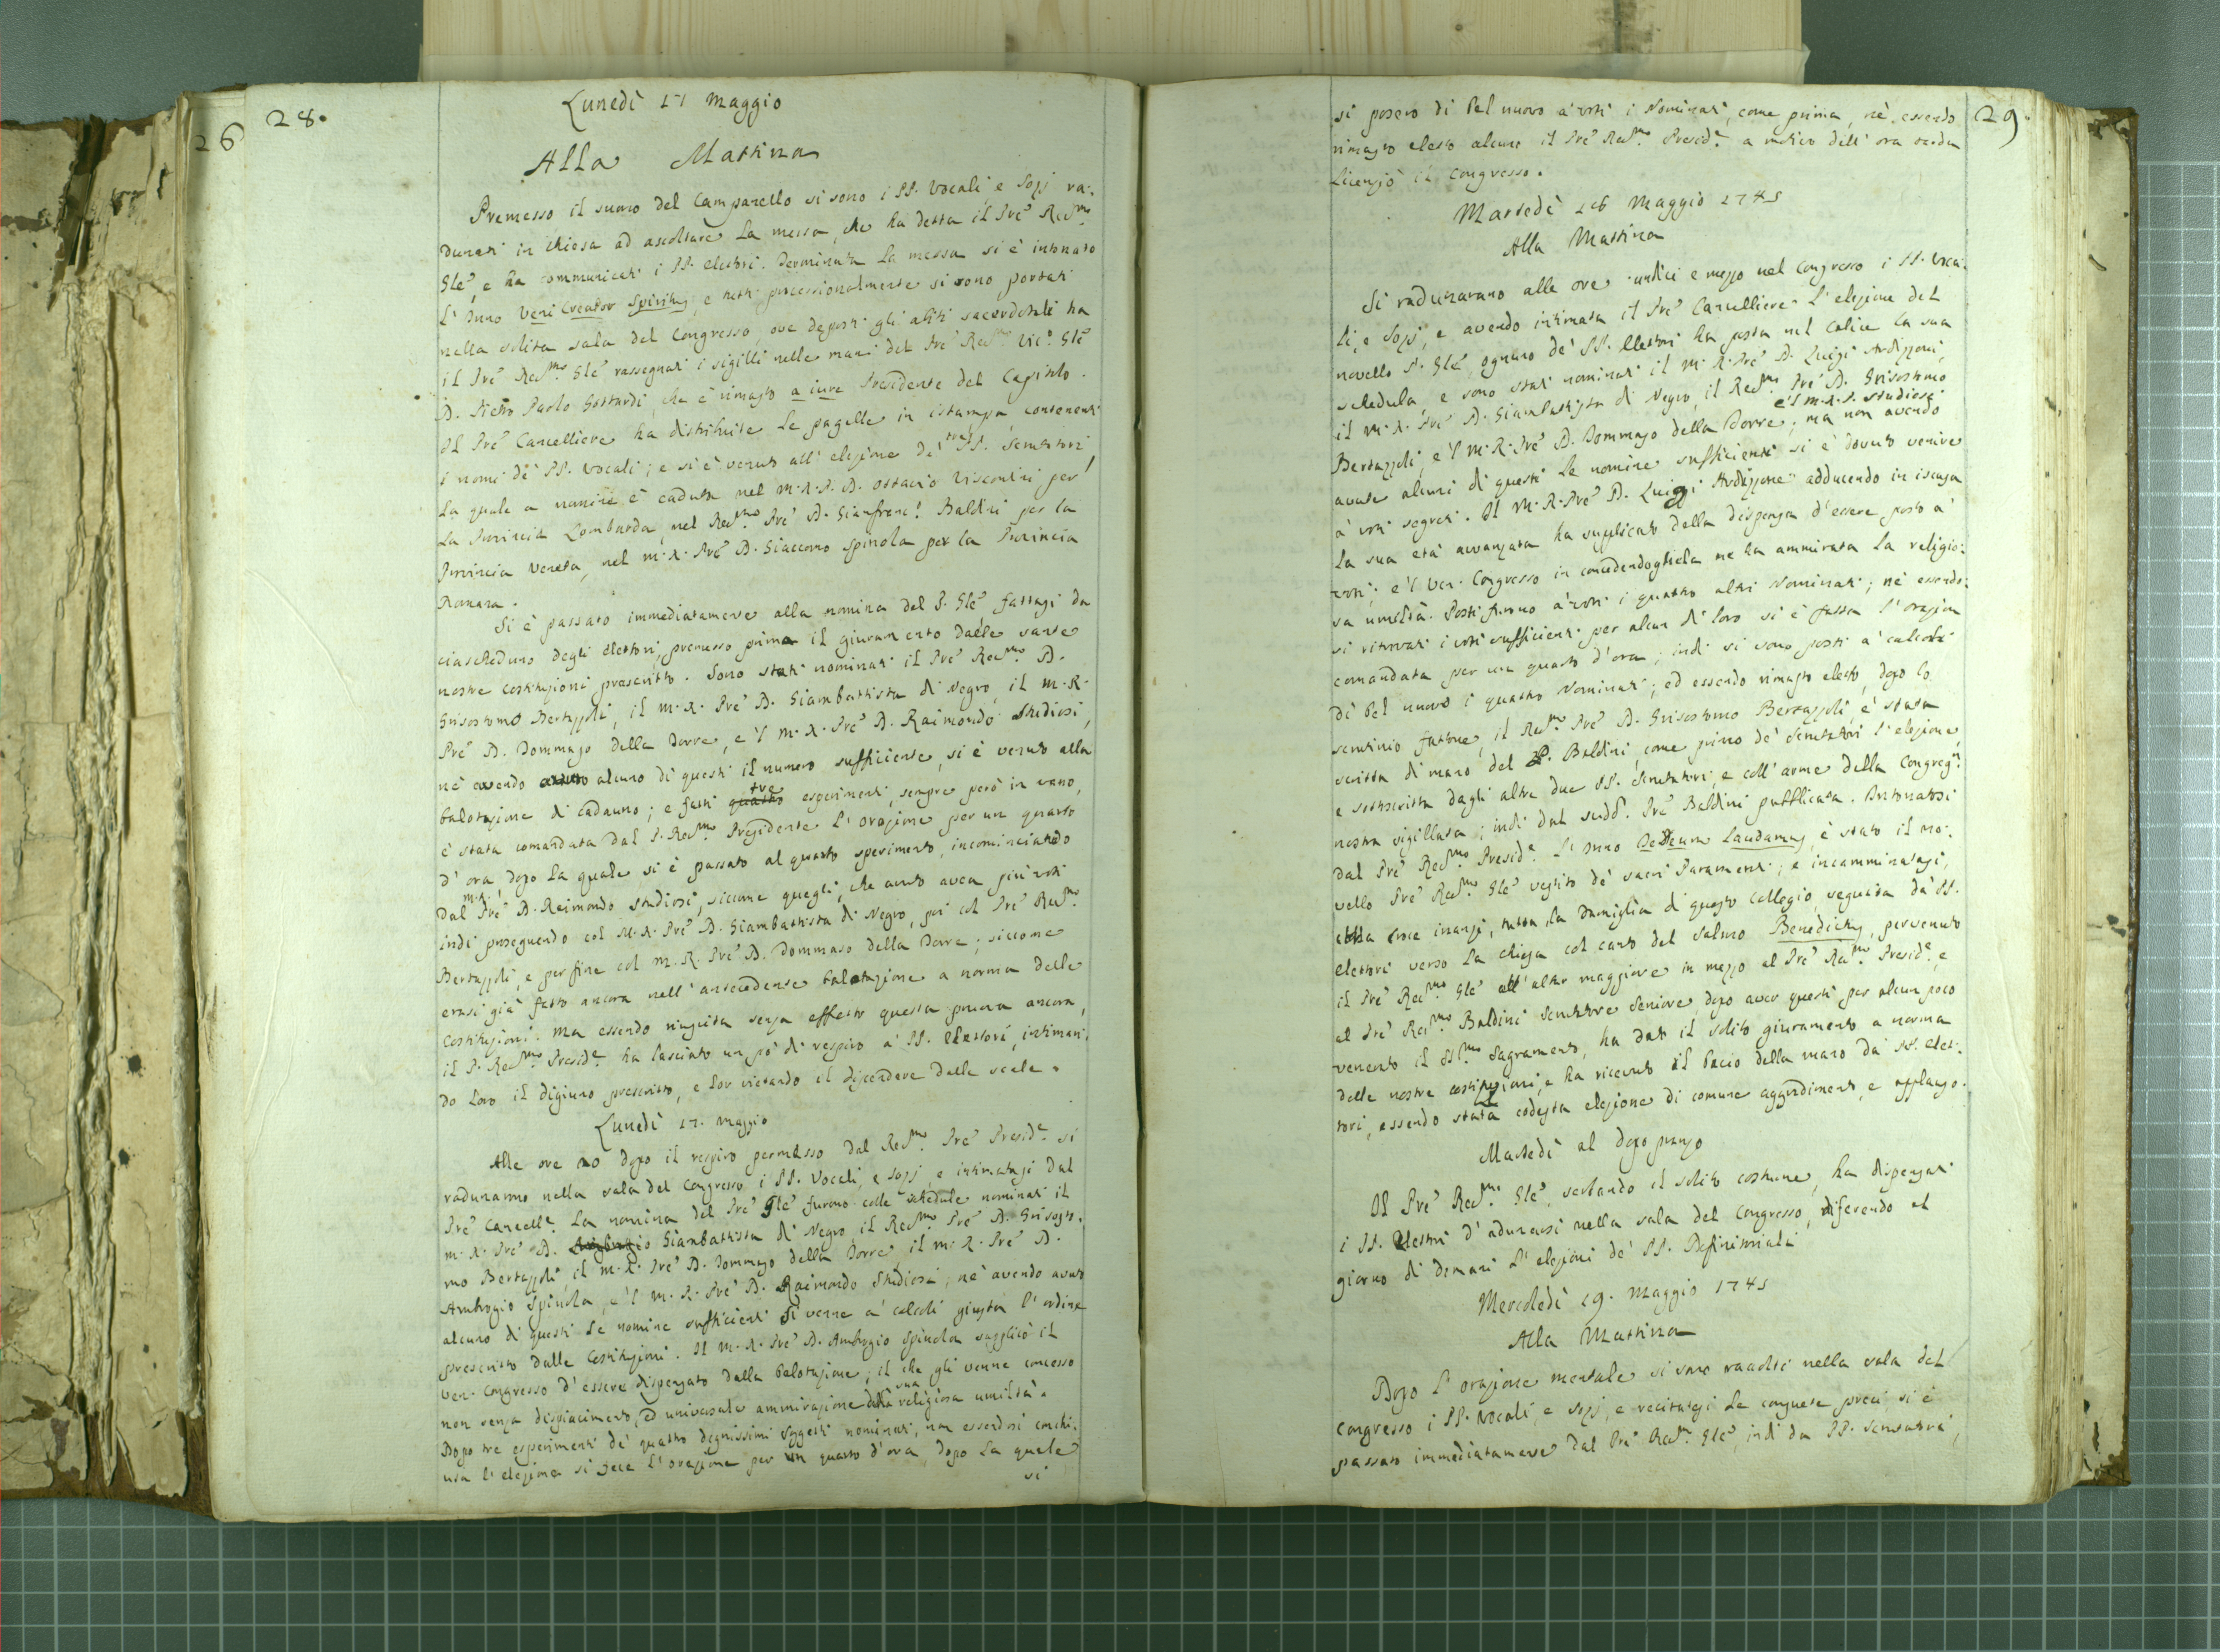 26
28.
Lunedì 17 Maggio
Alla Mattina
Premesso il suono del Campanello si sono i PP. Vocali, e Sozj ra-
dunati in chiesa ad ascoltare la messa, che ha detta il Pre Redmo
Gle, e ha communicati i PP. elettori. Terminata la messa si è intonato
l' Inno Veni Creator Spiritus, e tutti processionalmente si sono portati
nella solita sala del Congresso, ove deposti gli abiti sacerdotali ha
il Pre Redmo Gle rassegnati i sigilli nelle mani del Pre Redmo Vic. Gle
D. Pietro Paolo Gottardi, che è rimasto a iure Presidente del Capitolo.
Il Pre Cancelliere ha distribuite le pagelle in istampa, contenenti
i nomi de' PP. Vocali; e si è venuto all' elezione de' tre PP. Scrutatori
la quale a nomine è caduta nel M. R. P. D. Ottavio Visconti per
la Provincia Lombarda, nel Redmo Pre D. Gianfranc. Baldini per la
Provincia Veneta, nel M. R. Pre D. Giacomo Spinola per la Provincia
Romana.
Si è passato immediatamente alla nomina del P. Gle fattasi da
ciascheduno degli elettori, premesso prima il giuramento dalle sante
nostre Costituzioni prescritto. Sono stati nominati il Pre Redmo D.
Grisostomo Bertazzoli, il M. R. Pre D. Giambattista di Negro, il M. R.
Pre D. Tommaso della Torre, e 'l M. R. Pre D. Raimondo Studiosi,
nè avendo avuto alcuno di questi il numero sufficiente, si è venuto alla
balotazione di cadauno; e fatti quattro tre esperimenti, sempre però in vano,
è stata comandata dal P. Redmo Presidente l' orazione per un quarto
d' ora, dopo la quale si è passato al quarto sperimento, incominciando
dal M. R. Pre D. Raimondo Studiosi, siccome quegli, che avuto avea più voti
indi proseguendo col M. R. Pre D. Giambattista di Negro, poi col Pre Redmo
Bertazzoli, e per fine col M. R. Pre D. Tommaso della Torre; siccome
erasi già fatto ancora nell' antecedente balotazione a norma delle
Costituzioni. Ma essendo riuscita senza effetto questa prova ancora,
il P. Redmo Preside ha lasciato un pò di respiro a' PP. Elettori, intiman-
do loro il digiuno prescritto, e lor vietando il discendere dalle scale.
Lunedì 17. Maggio
Alle ore 20 dopo il respiro permesso dal Redmo Pre Preside si
radunarono nella sala del Congresso i PP. Vocali, e Sozj, e intimatasi dal
Pre Cancelle la nomina del Pre Gle furono colle schedule nominati il
M. R. Pre D. Ambrogio Giambattista di Negro, il Redmo Pre D. Grisosto-
mo Bertazzoli, il M. R. Pre D. Tommaso della Torre, il M. R. Pre D.
Ambrogio Spinola, e 'l M. R. Pre D. Raimondo Studiosi, nè avendo avuto
alcuno di questi le nomine sufficienti si venne a' calcoli giusta l' ordine
prescritto dalle Costituzioni. Il M. R. Pre D. Ambrogio Spinola supplicò il
Ven. Congresso d' essere dispensato dalla balotazione; il che gli venne concesso
non senza dispiacimento, ed universale ammirazione della sua religiosa umiltà.
Dopo tre esperimenti de' quattro degnissimi soggetti nominati, non essendosi conchi-
usa l' elezione si fece l' orazione per un quarto d' ora, dopo la quale
si
29.
si posero di bel nuovo a' voti i Nominati, come prima, nè essendo
rimasto eletto alcuno il Pre Redmo Preside a motivo dell' ora tarda
licenziò il Congresso.
Martedì 18 Maggio 1745
Alla Mattina
Si radunarono alle ore undici e mezzo nel Congresso i PP. Voca-
li, e Sozj, e avendo intimata il Pre Cancelliere l' elezione del
novello P. Gle, ognuno de' PP. Elettori ha posta nel Calice la sua
schedula, e sono stati nominati il M. R. Pre D. Luigi Ardizzoni,
il M. R. Pre D. Giambattista di Negro, il Redmo Pre D. Grisostomo
Bertazzoli, e 'l M. R. Pre D. Tommaso della Torre, e 'l M. R. P. Studiosi; ma non avendo
avute alcuni di questi le nomine sufficienti si è dovuto venire
a' voti segreti. Il M. R. Pre D. Luigi Ardizzone adducendo in iscusa
la sua età avvanzata ha supplicato della dispensa d' essere posto a'
voti; e 'l Ven. Congresso in concedendogliela ne ha ammirata la religio-
sa umiltà. Posti furono a' voti i quattro altri Nominati; nè essendo-
si ritrovati i voti sufficienti per alcun di loro si è fatta l' orazion
comandata per un quarto d' ora; indi si sono posti a' calcoli
di bel nuovo i quattro Nominati; ed essendo rimasto eletto, dopo lo
scrutinio fattone, il Redmo Pre D. Grisostomo Bertazzoli, è stata
scritta di mano del P. Baldini, come primo de' Scrutatori l' elezione,
e sottoscritta dagli altri due PP. Scrutatori, e coll' arme della Congregne
nostra sigillata; indi dal sudd. Pre Baldini pubblicata. Intonatosi
dal Pre Redmo Preside l' Inno Te Deum Laudamus, è stato il no-
vello Pre Redmo Gle vestito de' sacri Paramenti; e incamminatasi,
colla croce inanzi, tutta la Famiglia di questo Collegio, seguita da' PP.
elettori verso la chiesa col canto del salmo Benedictus, pervenuto
il Pre Redmo Gle all' altar maggiore in mezzo al Pre Redmo Preside, e
al Pre Redmo Baldini Scrutatore Seniore, dopo aver questi per alcun poco
venerato il SSmo Sagramento, ha dato il solito giuramento a norma
delle nostre costituzioni, e ha ricevuto il bacio della mano da' PP. Elet-
tori, essendo stata codesta elezione di comune aggradimento, e applauso.
Martedì al dopo pranzo
Il Pre Redmo Gle, serbando il solito costume, ha dispensati
i PP. Elettori d' adunarsi nella sala del Congresso, diferendo al
giorno di domani l' elezioni de' PP. Definitoriali
Mercoledì 19. Maggio 1745
Alla Mattina
Dopo l' orazione mentale si sono raccolti nella sala del
Congresso i PP. Vocali, e Sozj, e recitatesi le consuete preci, si è
passato immediatamente dal Pre Redmo Gle, indi da PP. Scrutatori,